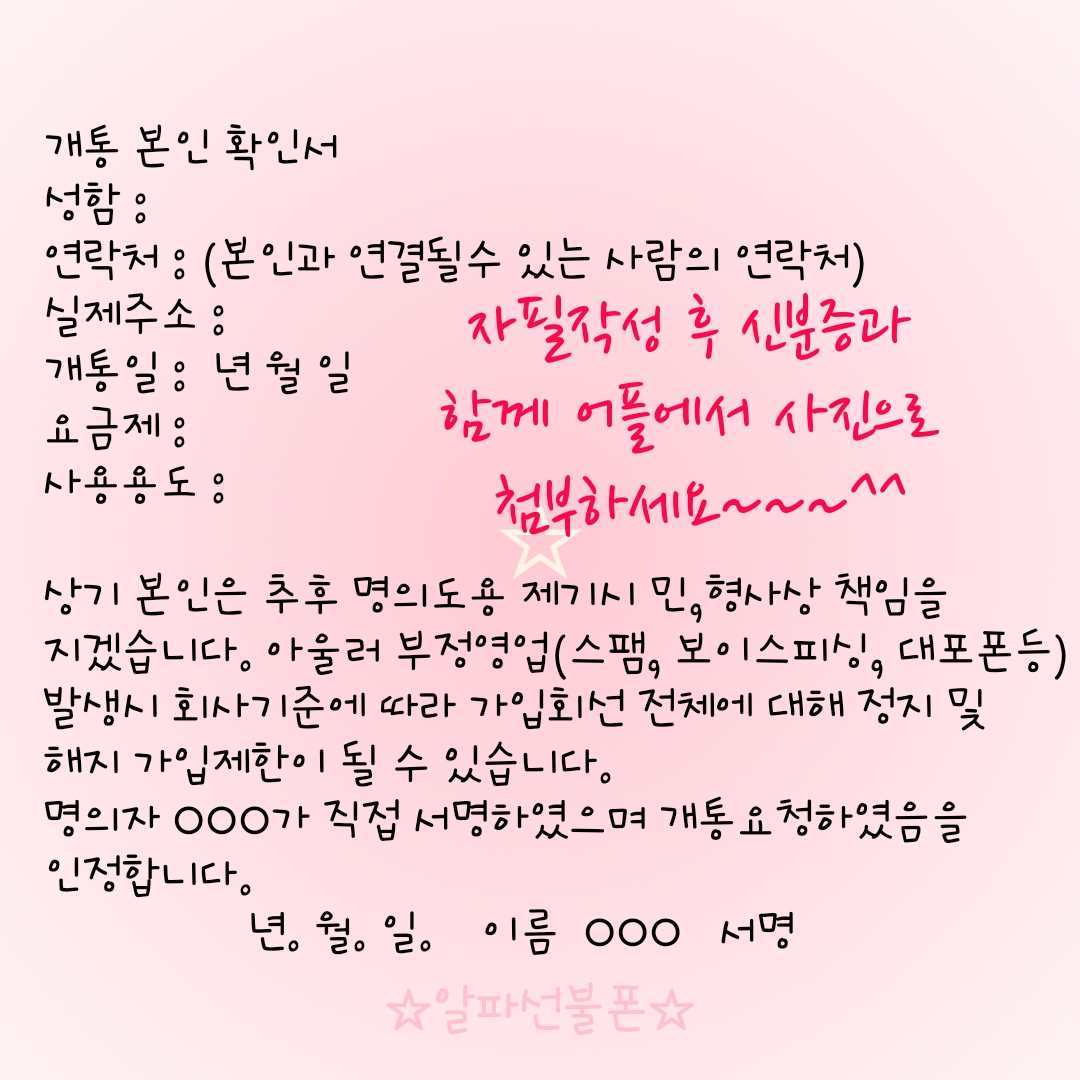 개통 본인 확인서
성함 :
연락처 : (본인과 연결될수 있는 사람의 연락처)
실제주소 :
개통일 : 년 월 일
요금제 :
사용용도 :
자필작성 후 신분증과
함께 어플에서 사진으로
첨부하세요~~~^^
상기 본인은 추후 명의도용 제기시 민,형사상 책임을
지겠습니다. 아울러 부정영업(스팸, 보이스피싱, 대포폰등)
발생시 회사기준에 따라 가입회선 전체에 대해 정지 및
해지 가입제한이 될 수 있습니다.
명의자 OOO가 직접 서명하였으며 개통요청하였음을
인정합니다.
년. 월. 일. 이름 OOO 서명
☆알파선불폰☆